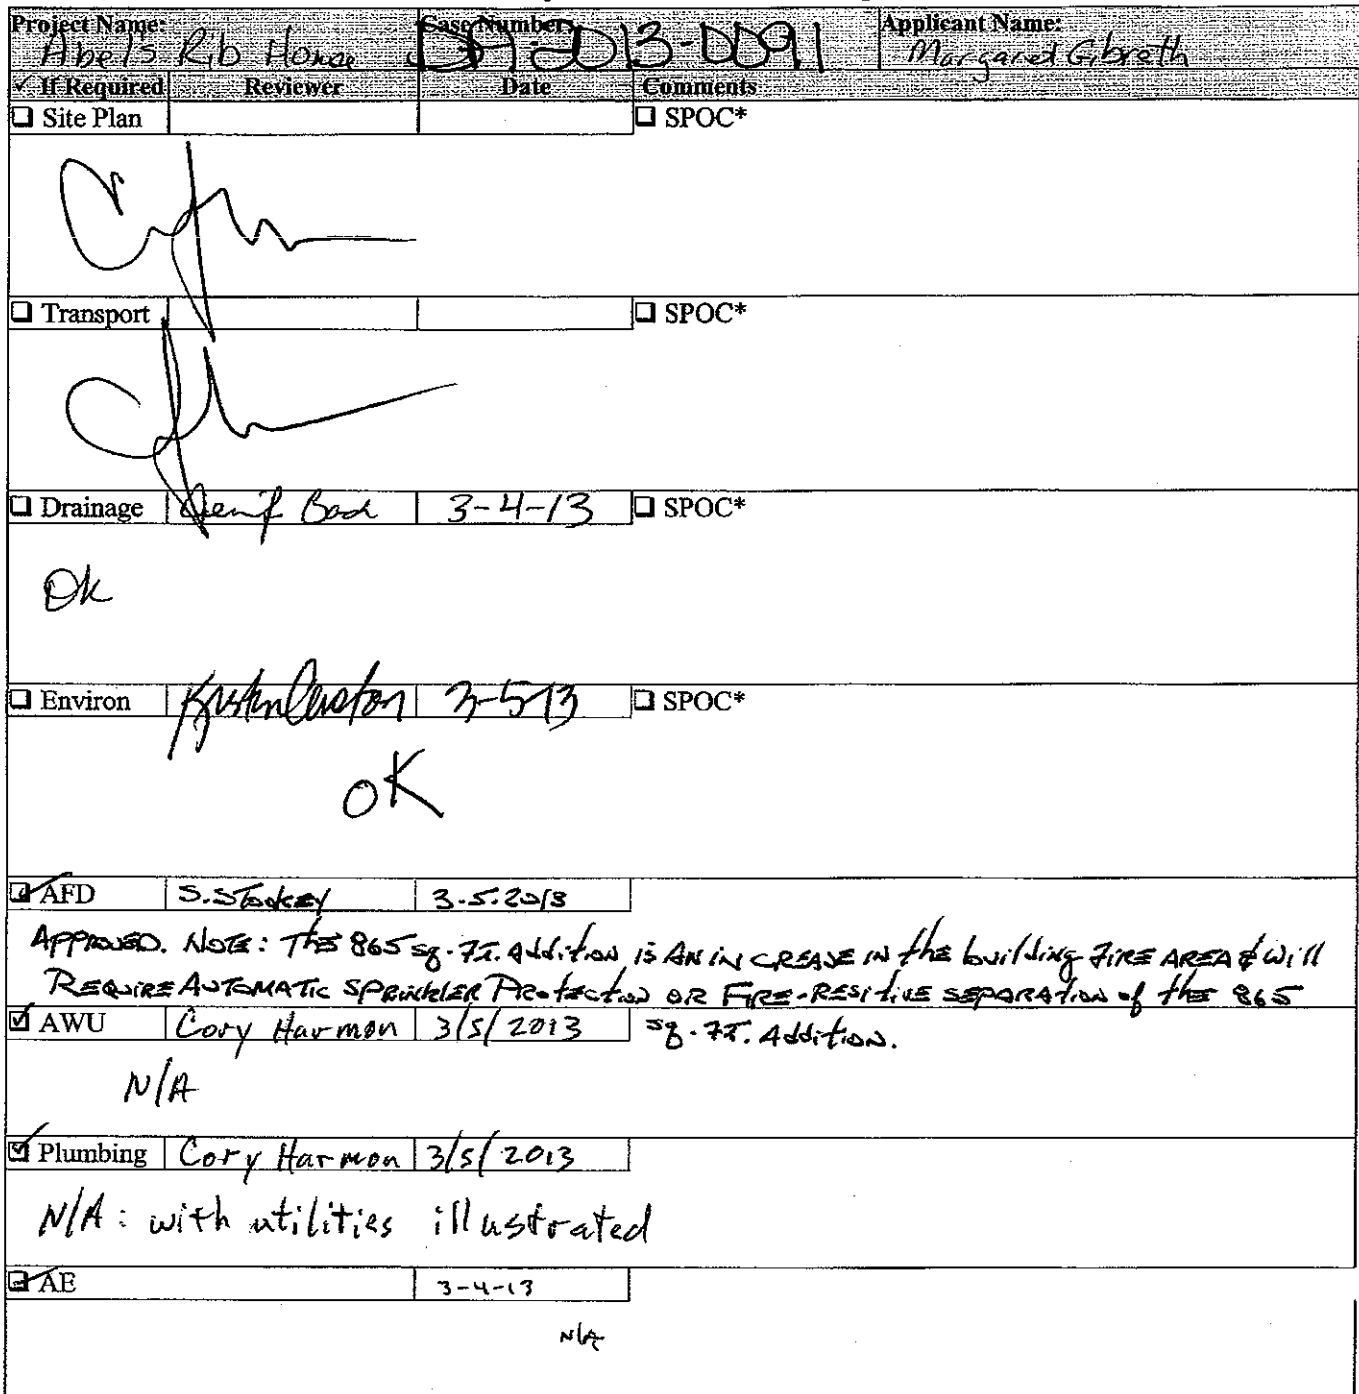 Project Name: Case Number: Applicant Name:
Abels Rib House 2013-0091 Margaret
✓ If Required Reviewer Date Comments
Site Plan SPOC*
Transport SPOC*
Drainage 3-4-13 SPOC*
Ok
Environ 3-5-13 SPOC*
OK
AFD 3.5.2013
APPROVED. NOTE: THE 865 sq. FT. Addition is AN INCREASE IN the building FIRE AREA & will
REQUIRE AUTOMATIC SPRINKLER Protection OR FIRE-RESITIVE SEPARATION of the 865
AWU Cory Harmon 3/5/2013 sq. FT. Addition.
N/A
Plumbing Cory Harmon 3/5/2013
N/A: with utilities illustrated
AE 3-4-13
N/A